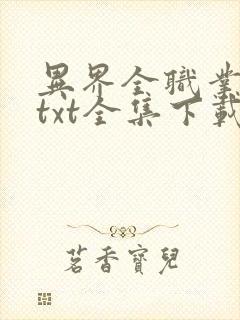 異界全職業
txt全集下載
茗香寶兒